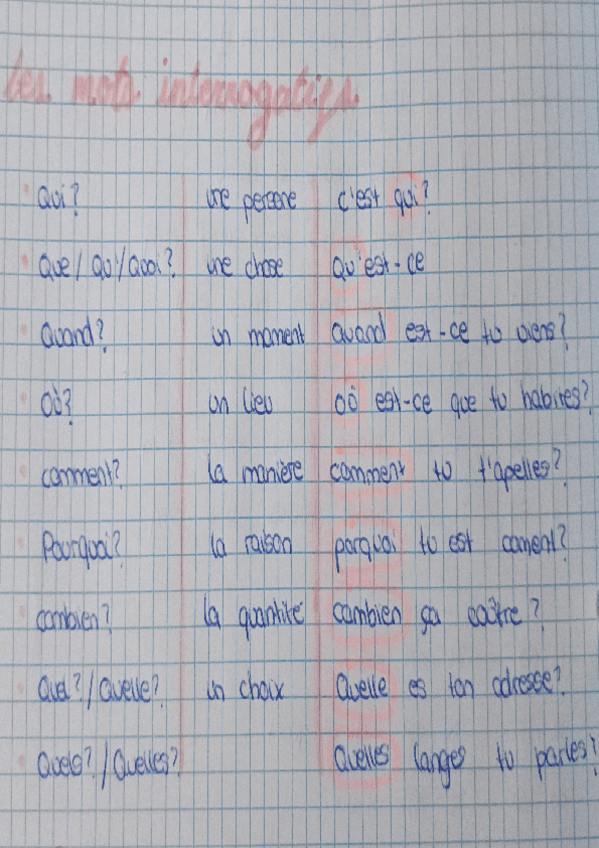 Les mots interrogatifs.
Qui? une persone c'est qui?
Que / Qu'/Quoi? une chose Qu'est-ce
Quand? un moment Quand est-ce tu viens?
Où? un lieu Où est-ce que tu habites?
comment? la manière comment tu t'apelles?
Pourquoi? la raison porquoi tu est coment?
combien? la quantité combien ça coûtre?
Quel? / Quelle? un choix Quelle es ton adresse?
Quels? / Quelles? Quelles langes tu parles?